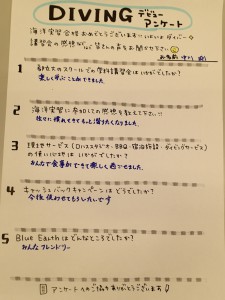 DIVING デビュー
アンケート
海洋実習合格おめでとうございます!!
講習会の感想など皆さんの声をお聞かせ下さい
お名前
1 スクールでの学科講習会はいかがでしたか?
楽しく学ぶことができました。
2 海洋実習に参加しての感想を教えて下さい!!
もっと潜りたくなりました。
3 サービス(ロハスタジオ・BBQ・宿泊施設・ダイビングサービス)
の使い心地はいかがでしたか?
みんなで食事ができて楽しく過ごせました。
4 キャッシュバックキャンペーンはどうでしたか?
今後使わせてもらいたいです
5 Blue Earthはどんなところでしたか?
みんなフレンドリー
アンケートへのご協力ありがとうございます!